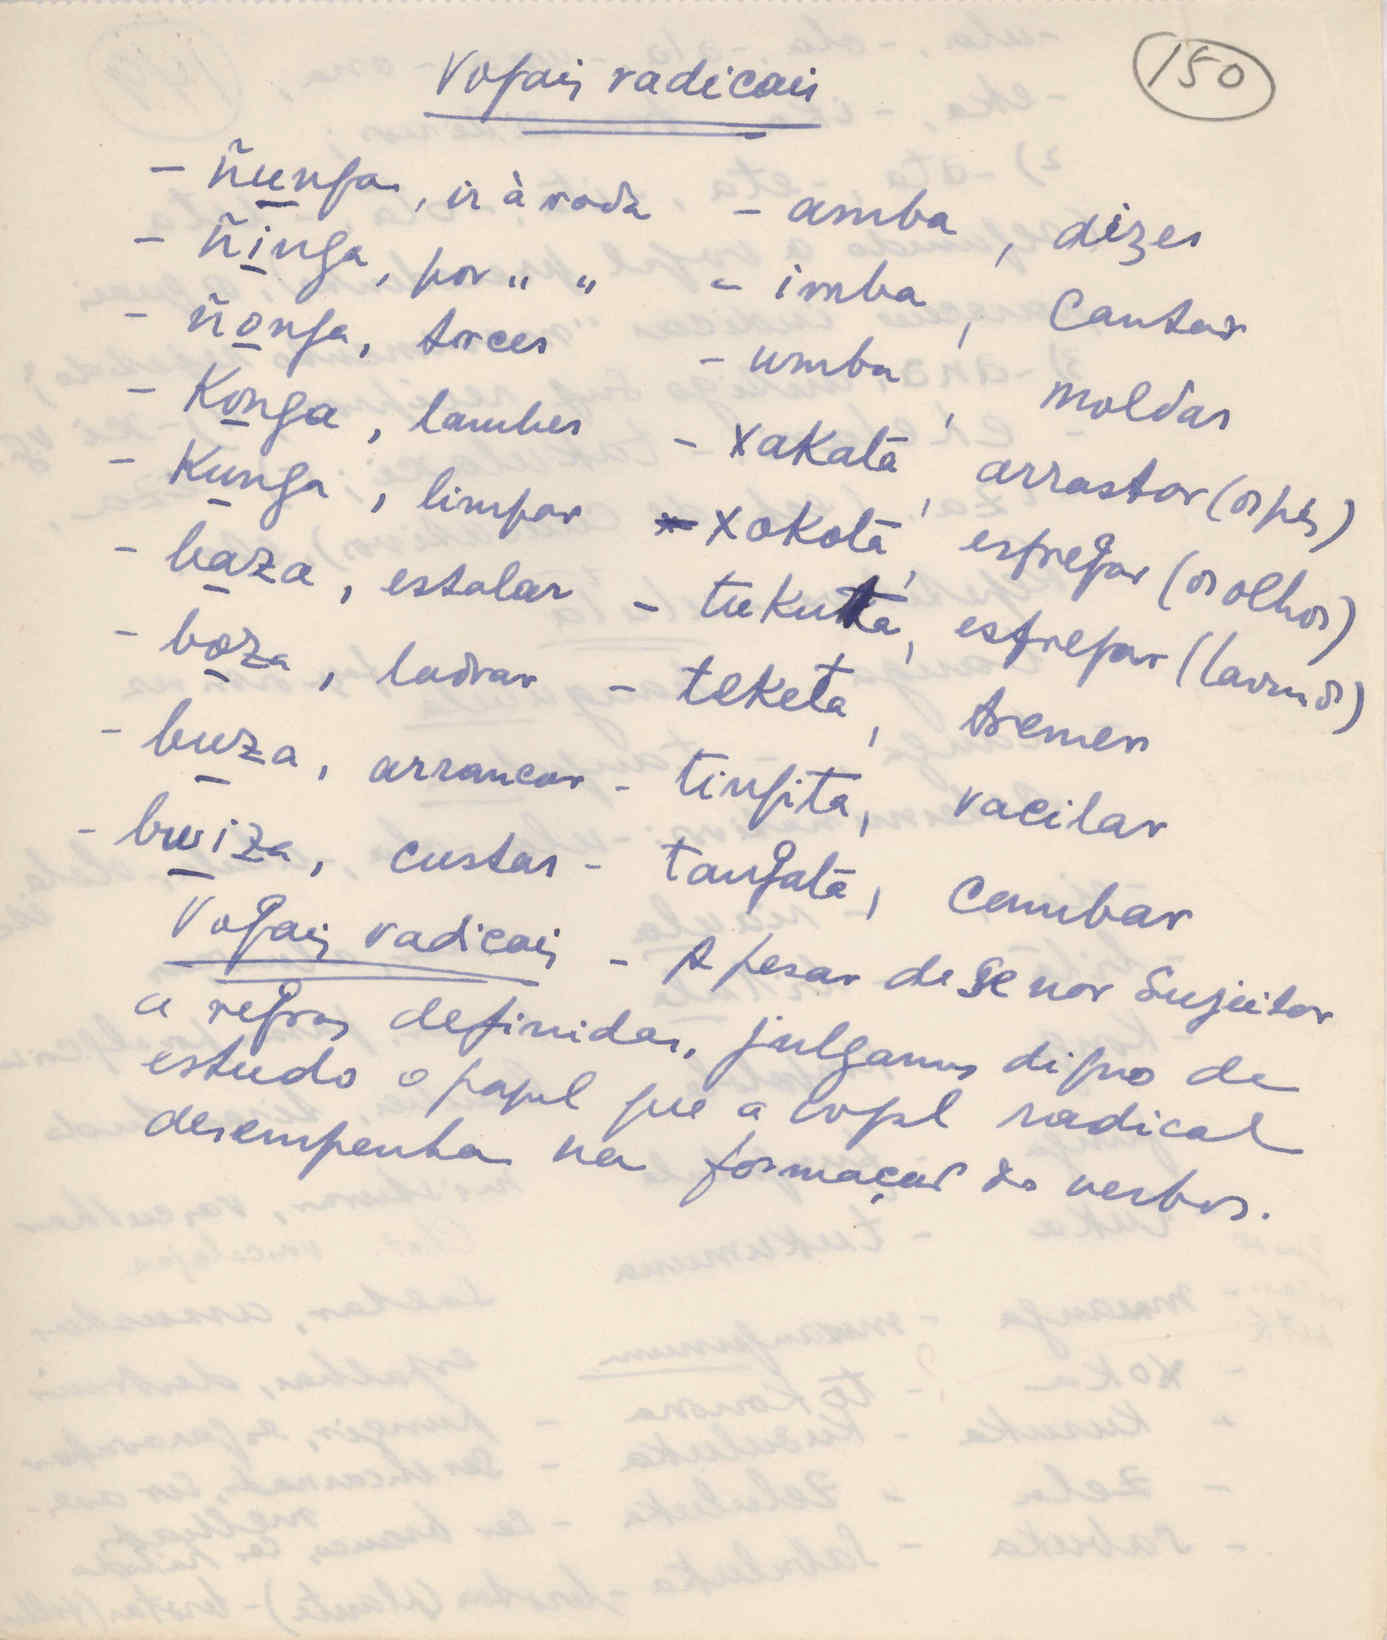 150
Vogais radicais
- ñunga, ir à roda - amba, dizer
- ñinga, por " " - imba, cantar
- ñonga, torcer - umba, moldar
- Konga, lamber - xakata, arrastar (os pés)
- Kunga, limpar - xokota, esfregar (os olhos)
- baza, estalar - tukuta, esfregar (lavando)
- boza, ladrar - teketa, tremer
- buza, arrancar - tingita, vacilar
- bwiza, custar - tangata, cambar
Vogais radicais - Apesar de se nos sujeitar
a regras definidas, julgamos digno de
estudo o papel que a vogal radical
desempenha na formação dos verbos.